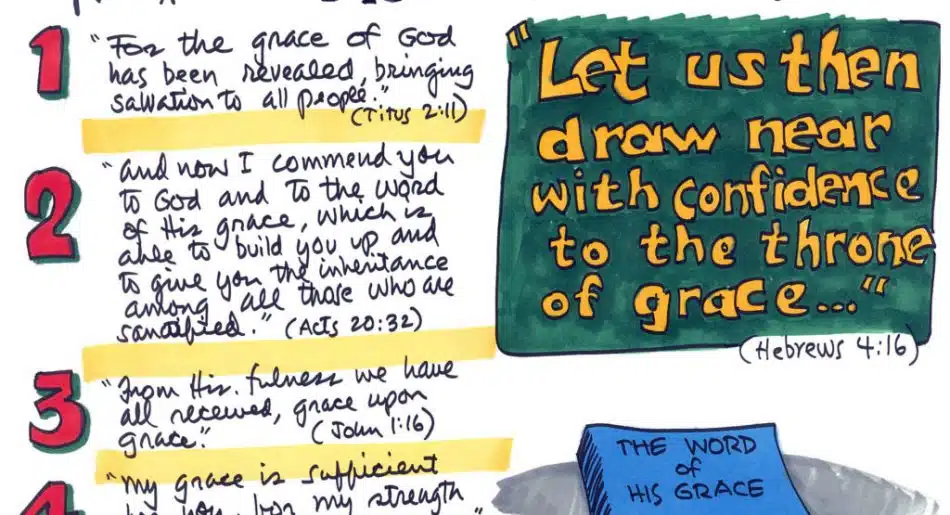 1 "For the grace of God
has been revealed, bringing
salvation to all people."
(Titus 2:11)
2 "and now I commend you
to God and to the word
of His grace, which is
able to build you up and
to give you the inheritance
among all those who are
sanctified." (Acts 20:32)
3 "From His fulness we have
all received, grace upon
grace." (John 1:16)
4 "My grace is sufficient
for you, for my strength
"Let us then
draw near
with confidence
to the throne
of grace..."
(Hebrews 4:16)
THE WORD
of
HIS GRACE